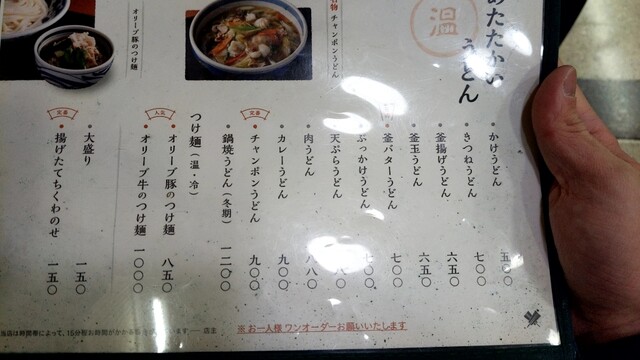 あたたかい
うどん
温
かけうどん 五〇〇
きつねうどん 七〇〇
釜揚げうどん 六五〇
釜玉うどん 六五〇
釜バターうどん 七〇〇
ぶっかけうどん 七〇〇
天ぷらうどん
肉うどん 八八〇
カレーうどん 九〇〇
定番
チャンポンうどん 九〇〇
鍋焼うどん(冬期) 一二〇〇
つけ麺(温・冷)
オリーブ豚のつけ麺 八五〇
人気
オリーブ牛のつけ麺 一〇〇〇
大盛り 一五〇
定番
揚げたてちくわのせ 一五〇
チャンポンうどん
オリーブ豚のつけ麺
※お一人様 ワンオーダーお願いいたします
当店は時間帯によって、15分程お時間がかかる
店主